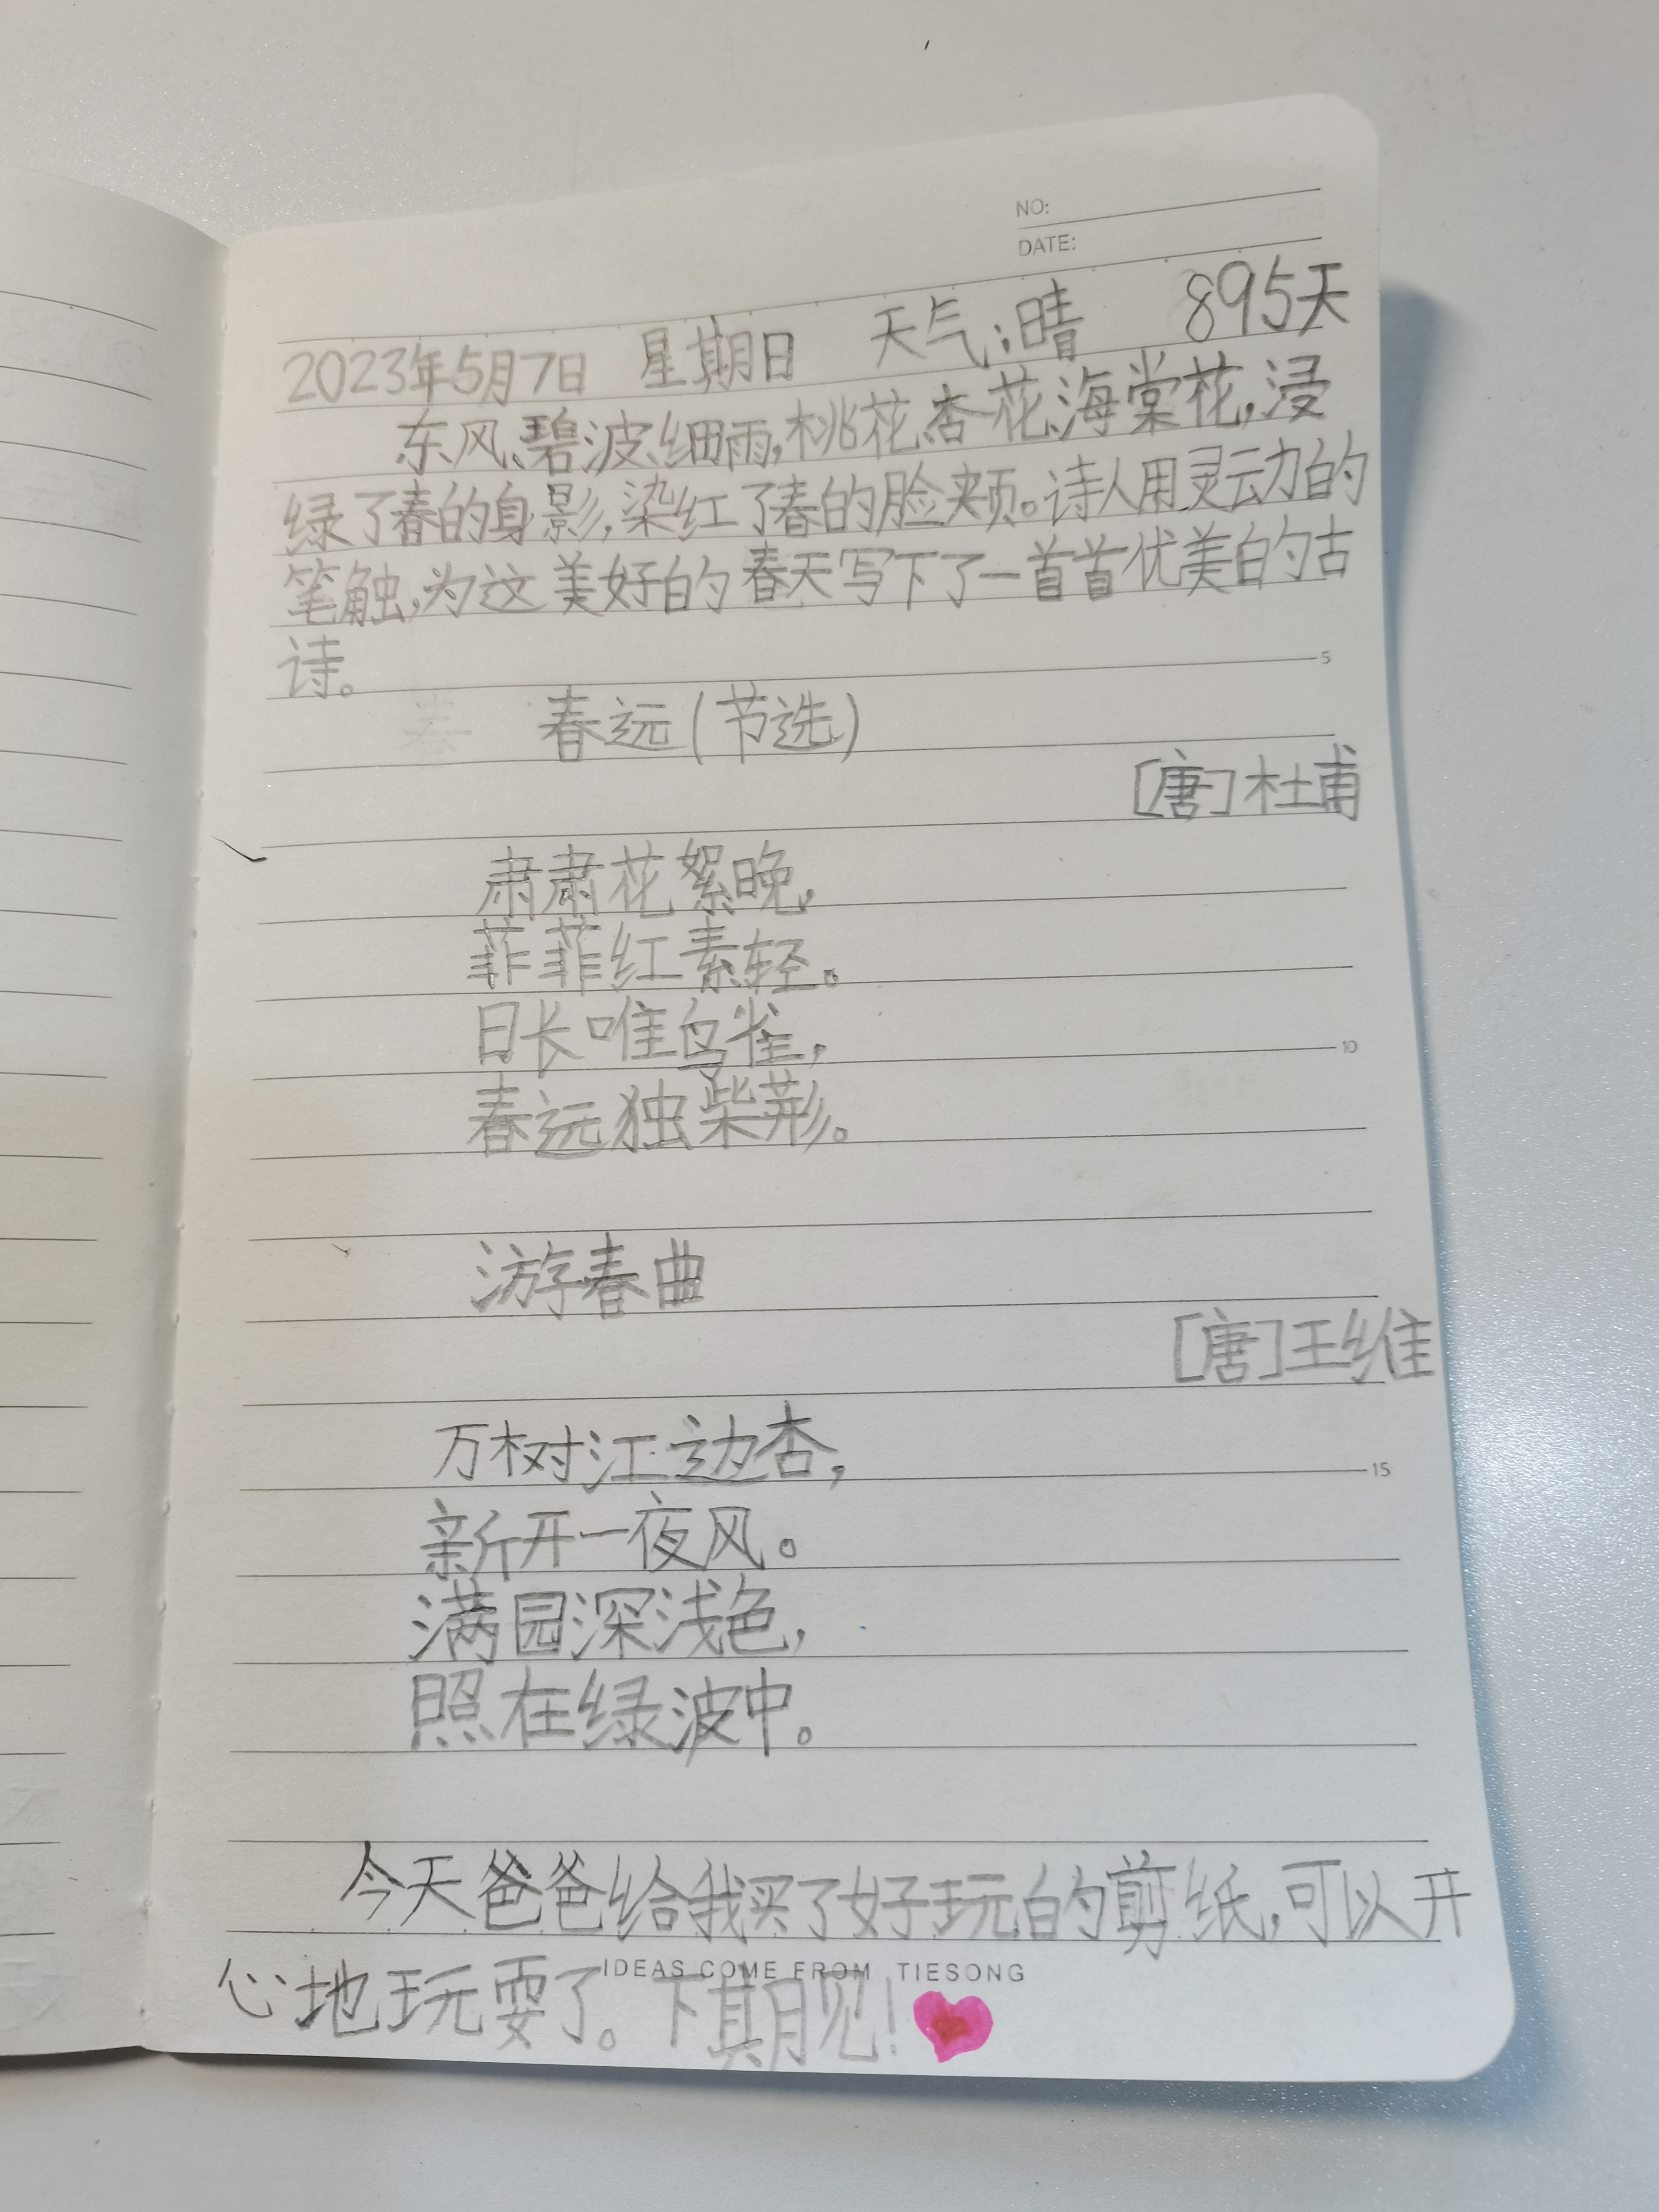 NO:
DATE:
2023年5月7日 星期日 天气:晴 895天
东风、碧波、细雨,桃花、杏花、海棠花,浸
绿了春的身影,染红了春的脸颊。诗人用灵动的
笔触,为这美好的春天写下了一首首优美的古
诗。
5
春远(节选)
[唐]杜甫
肃肃花絮晚,
菲菲红素轻。
日长唯鸟雀,
10
春远独柴荆。
游春曲
[唐]王维
万树江边杏,
15
新开一夜风。
满园深浅色,
照在绿波中。
今天爸爸给我买了好玩的剪纸,可以开
心地玩耍了。下期见!
IDEAS COME FROM TIESONG